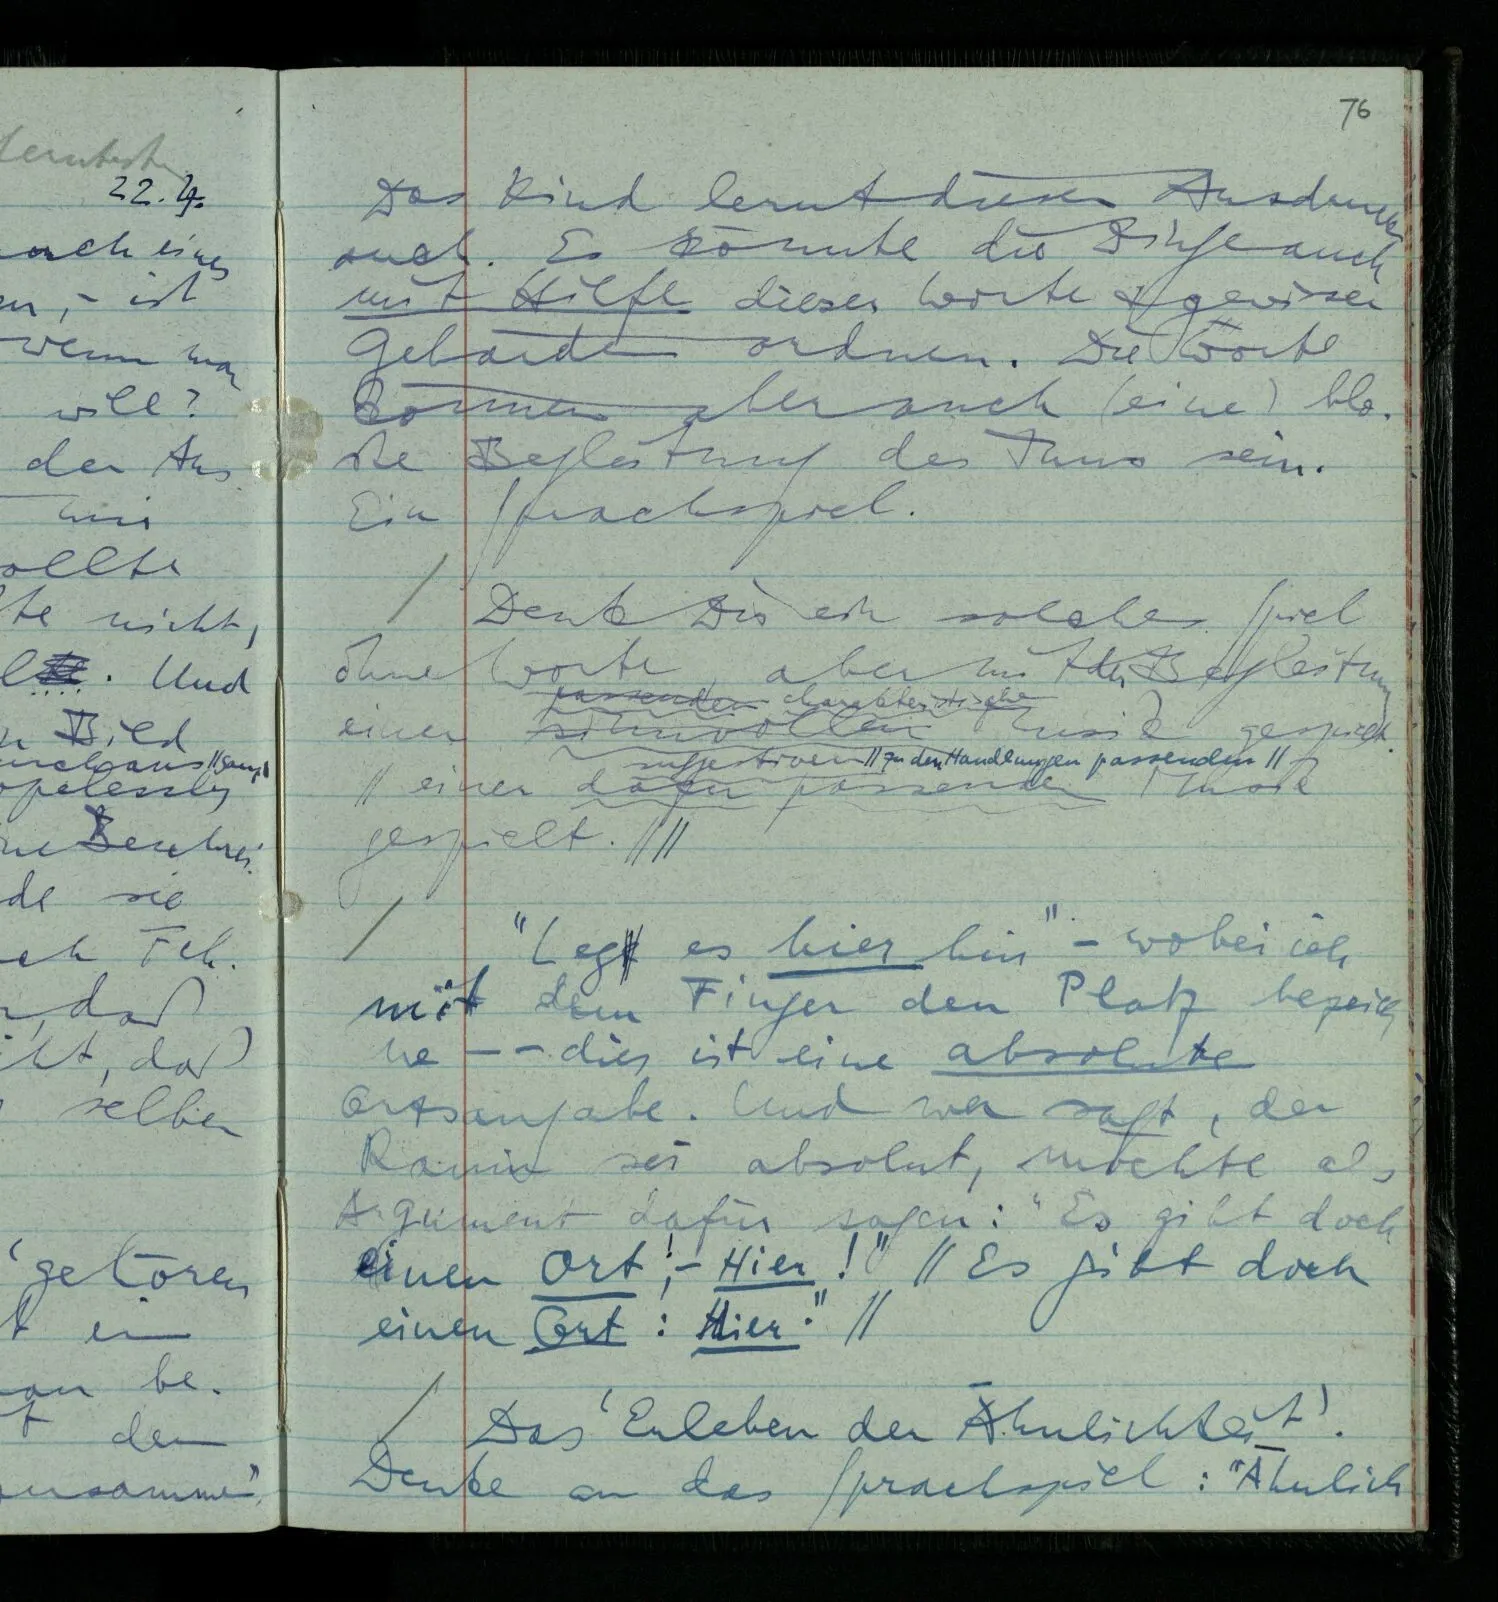 lernte
22.4.
nach eines
n, – ist
wenn man
will?
der Aus
mir
sollte
te nicht,
. Und
n Bild
durchaus // ganz
hopelessly
ne Beschrei
de sie
ch Feh.
n, daß
iht, daß
selben
getören
t ein
man be.
t dem
zusammen"
76
Das Kind lernt diesen Ausdruck
auch. Es könnte die Dinge auch
mit Hilfe dieser Worte & gewisser
Gebärden ordnen. Die Worte
können aber auch (eine) blo-
ße Begleitung des Tuns sein.
Ein Sprachspiel.
/ Denk Dir ein solches Spiel
ohne Worte, aber mit der Begleitung
passenden charakteristische
einer sinnvollen Musik gespielt.
suggestiven // zu den Handlungen passenden //
// einer dafür passenden Musik
gespielt. // //
/ "Leg es hier hin" – wobei ich
mit dem Finger den Platz bezeich
ne – – dies ist eine absolute
Ortsangabe. Und wer sagt, der
Raum sei absolut, möchte als
Argument dafür sagen: "Es gibt doch
einen Ort!– Hier!" // Es gibt doch
einen Ort: Hier." //
/ Das 'Erleben der Ähnlichkeit'.
Denke an das Sprachspiel: "Ähnlich